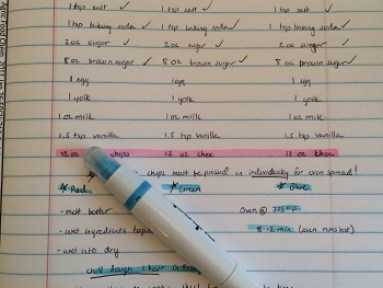 1 tsp salt ✓ 1 tsp salt ✓ 1 tsp salt ✓
1 tsp baking soda ✓ 1 tsp baking soda ✓ 1 tsp baking soda ✓
2 oz sugar ✓ 2 oz sugar ✓ 2 oz sugar ✓
8 oz brown sugar ✓ 8 oz brown sugar ✓ 8 oz brown sugar ✓
1 egg 1 egg 1 egg
1 yolk 1 yolk 1 yolk
1 oz milk 1 oz milk 1 oz milk
1.5 tsp vanilla 1.5 tsp vanilla 1.5 tsp vanilla
12 oz chips 12 oz choc 12 oz choc
chips must be pressed in individually for even spread!
Red Green Blue
- melt butter Oven @ 375°F
- wet ingredients 8-12 min (oven runs hot)
- wet into dry
chill dough 1 hour in